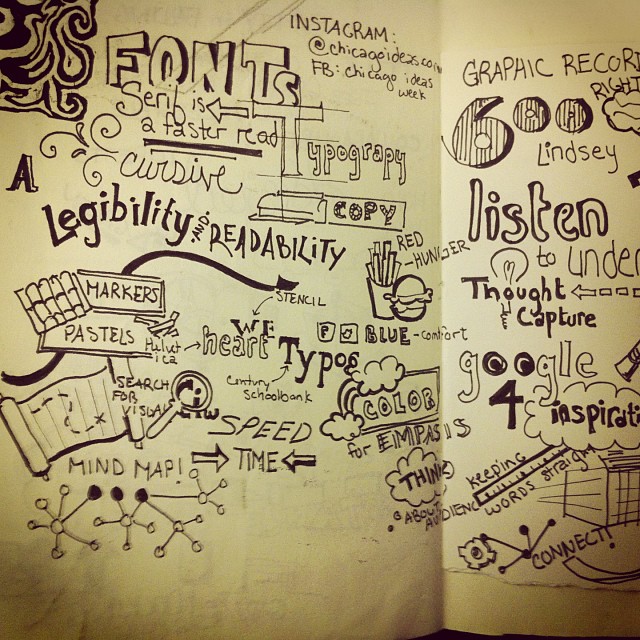 FONTS
INSTAGRAM:
@chicagoideas.com
FB: chicago ideas
week
Serif is
a faster read
Typograpy
cursive
A
COPY
Legibility AND READABILITY
RED
-HUNGER
MARKERS
PASTELS
STENCIL
Helvet
ica
WE
heart
Typos
BLUE-comfort
Century
Schoolbank
SEARCH
FOR
VISUAL
COLOR
for EMPASIS
SPEED
MIND MAP!
TIME
THINK
ABOUT
AUDIENCE
GRAPHIC RECORD
RIGHT
600
Lindsey
listen
to under
Thought
Capture
google
4
inspirati
keeping
words straight
CONNECT!